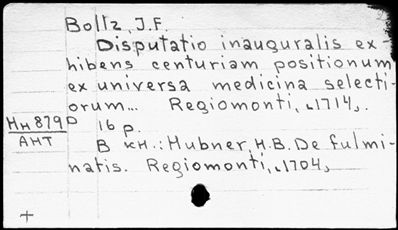 Boltz, J.F.
Disputatio inauguralis ex-
hibens centuriam positionum
ex universa medicina selecti-
orum... Regiomonti, [1714].
HH 879D 16 p.
AHT B KH.: Hubner, H.B. De fulmi-
natis. Regiomonti, [1704]